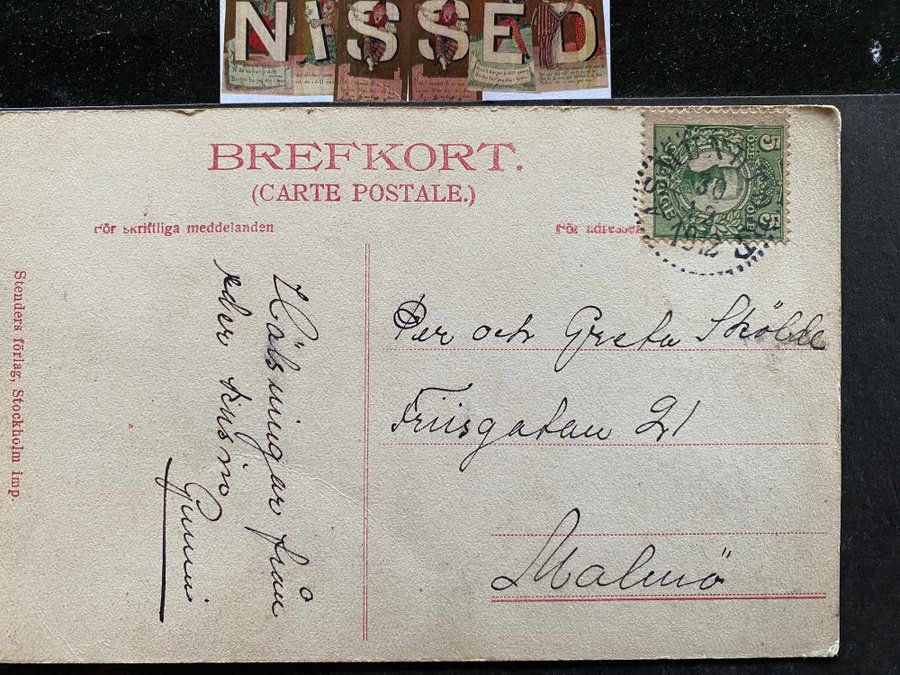 NISSED
BREFKORT.
(CARTE POSTALE.)
För skriftliga meddelanden
För adressen
5 5
SVERIGE
30
1912
Hälsningar från
eder kusin
Gunni
Per och Greta Skölde
Friisgatan 21
Malmö
Stenders förlag, Stockholm imp.